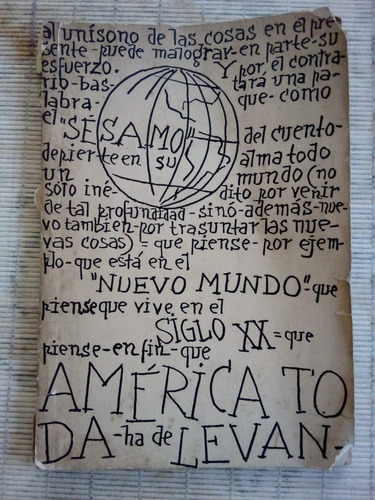 al unísono de las cosas en el pre
sente-puede malograr-en parte-su
esfuerzo. Y por el contra
rio-bas- tará una pa-
labra- que-como
el "SÉSAMO" del cuento-
depierte en su alma todo
un mundo (no
sólo iné- dito por venir
de tal profundidad-sinó-además-nue-
vo tambien-por trasuntar las nue-
vas cosas)=que piense-por ejem-
plo-que está en el
"NUEVO MUNDO" que
piense que vive en el
SIGLO XX=que
piense-en fin-que
AMÉRICA TO
DA-ha de LEVAN-